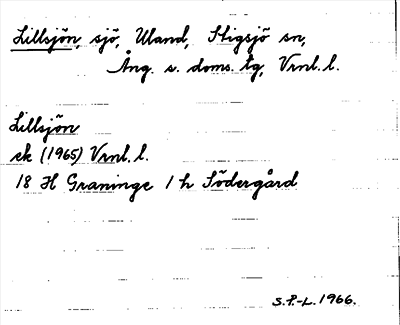 Lillsjön, sjö, Uland, Stigsjö sn,
Ång. s. doms. tg, Vrnl. l.
Lillsjön
ek (1965) Vrnl. l.
18 H Graninge 1 h Södergård
S.P.-L. 1966.